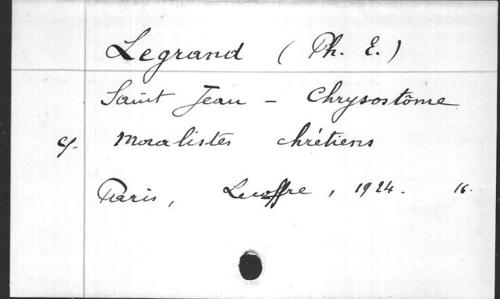 Legrand (Ph. E.)
Saint Jean - Chrysostôme
cf. Moralistes chrétiens
Paris, Lecoffre, 1924. 16.